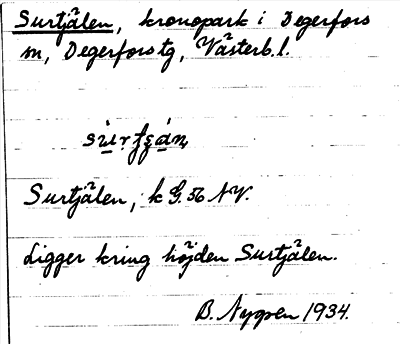 Surtjälen, kronopark i Degerfors
sn, Degerfors tg, Västerb. l.
Surtjälen, k G. 56 NV.
Ligger kring höjden Surtjälen.
B. Nygren 1934.